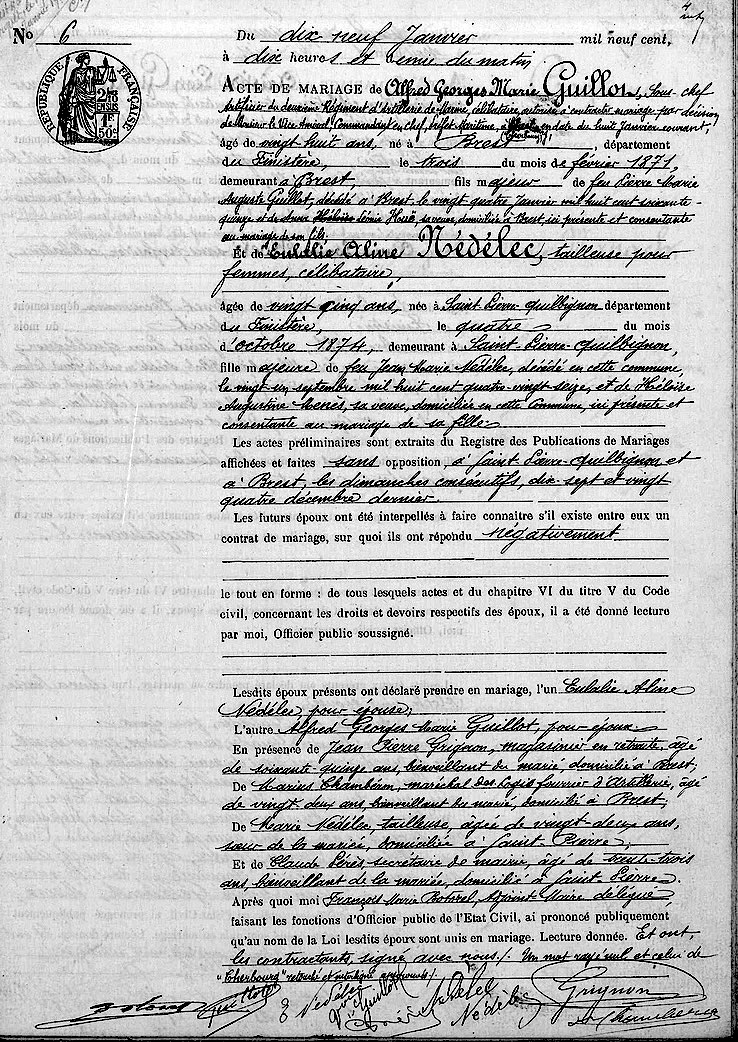 No 6
RÉPUBLIQUE FRANÇAISE
1F 50c
Du dix neuf Janvier mil neuf cent,
à dix heures et demie du matin
ACTE DE MARIAGE de Alfred Georges Marie Guillot, Sous-chef
artificier du deuxième Régiment d'Artillerie de Marine, célibataire, autorisé à contracter mariage par décision
de Monsieur le Vice Amiral, Commandant en chef, Préfet Maritime, à en date du huit janvier courant,
Cherbourg
âgé de vingt huit ans, né à Brest, département
du Finistère, le trois du mois de février 1871,
demeurant à Brest, fils majeur de feu Pierre Marie
Auguste Guillot, décédé à Brest, le vingt quatre janvier mil huit cent soixante-
quinze et de sa veuve, domiciliée à Brest, ici présente et consentante
au mariage de son fils.
Et de Eulalie Aline Nédélec, tailleuse pour
femmes, célibataire,
âgée de vingt cinq ans, née à Saint-Pierre-Quilbignon département
du Finistère, le quatre du mois
d'octobre 1874, demeurant à Saint-Pierre-Quilbignon,
fille majeure de feu Jean Marie Nédélec, décédé en cette commune,
le vingt un septembre mil huit cent quatre-vingt seize, et de Héloïse
Augustine Menès, sa veuve, domiciliée en cette Commune, ici présente et
consentante au mariage de sa fille.
Les actes préliminaires sont extraits du Registre des Publications de Mariages
affichées et faites sans opposition, à Saint Pierre-Quilbignon et
à Brest, les dimanches consécutifs, dix-sept et vingt
quatre décembre dernier.
Les futurs époux ont été interpellés à faire connaître s'il existe entre eux un
contrat de mariage, sur quoi ils ont répondu négativement
le tout en forme : de tous lesquels actes et du chapitre VI du titre V du Code
civil, concernant les droits et devoirs respectifs des époux, il a été donné lecture
par moi, Officier public soussigné.
Lesdits époux présents ont déclaré prendre en mariage, l'un Eulalie Aline
Nédélec pour épouse,
L'autre Alfred Georges Marie Guillot, pour époux
En présence de Jean Pierre Grignon, magasinier en retraite, âgé
de soixante-quinze ans, bienveillant du marié, domicilié à Brest,
De Marius Chambéron, maréchal des Logis fourrier d'Artillerie, âgé
de vingt deux ans, bienveillant du marié, domicilié à Brest,
De Marie Nédélec, tailleuse, âgée de vingt-deux ans,
sœur de la mariée, domiciliée à Saint Pierre,
Et de Claude Pérès, secrétaire de mairie, âgé de trente-trois
ans, bienveillant de la mariée, domicilié à Saint Pierre.
Après quoi moi François Marie, Adjoint-Maire délégué,
faisant les fonctions d'Officier public de l'Etat Civil, ai prononcé publiquement
qu'au nom de la Loi lesdits époux sont unis en mariage. Lecture donnée. Et ont,
les contractants, signé avec nous./. Un mot rayé nul et celui de
"Cherbourg" retouché et interligné approuvés./.
E Nédélec Guillot Nédélec Grignon